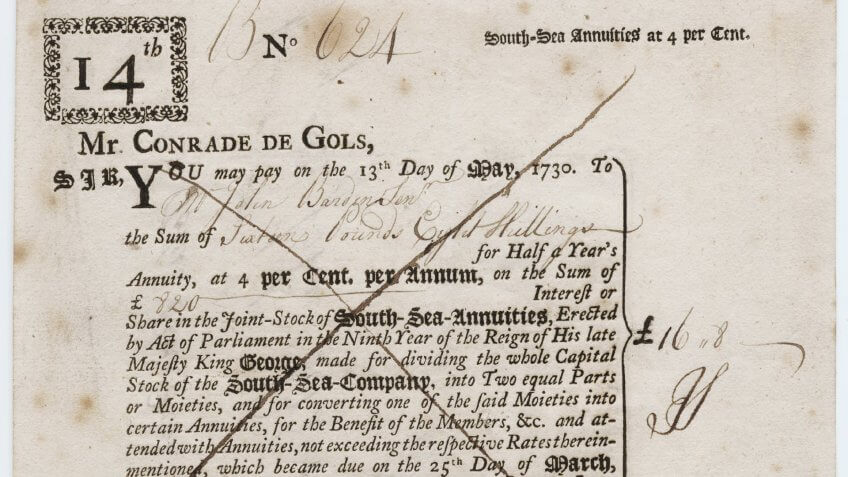 14th
B No 624
South-Sea Annuities at 4 per Cent.
Mr. CONRADE DE GOLS,
SIR, YOU may pay on the 13th Day of May, 1730. To
Mr John Barden Senr
the Sum of Sixteen Pounds Eight Shillings
for Half a Year's
Annuity, at 4 per Cent. per Annum, on the Sum of
£ 820 Interest or
Share in the Joint-Stock of South-Sea-Annuities, Erected
by Act of Parliament in the Ninth Year of the Reign of His late
Majesty King George, made for dividing the whole Capital
Stock of the South-Sea-Company, into Two equal Parts
or Moieties, and for converting one of the said Moieties into
certain Annuities, for the Benefit of the Members, &c. and at-
tended with Annuities, not exceeding the respective Rates therein-
mentioned, which became due on the 25th Day of March,
£ 16 „ 8